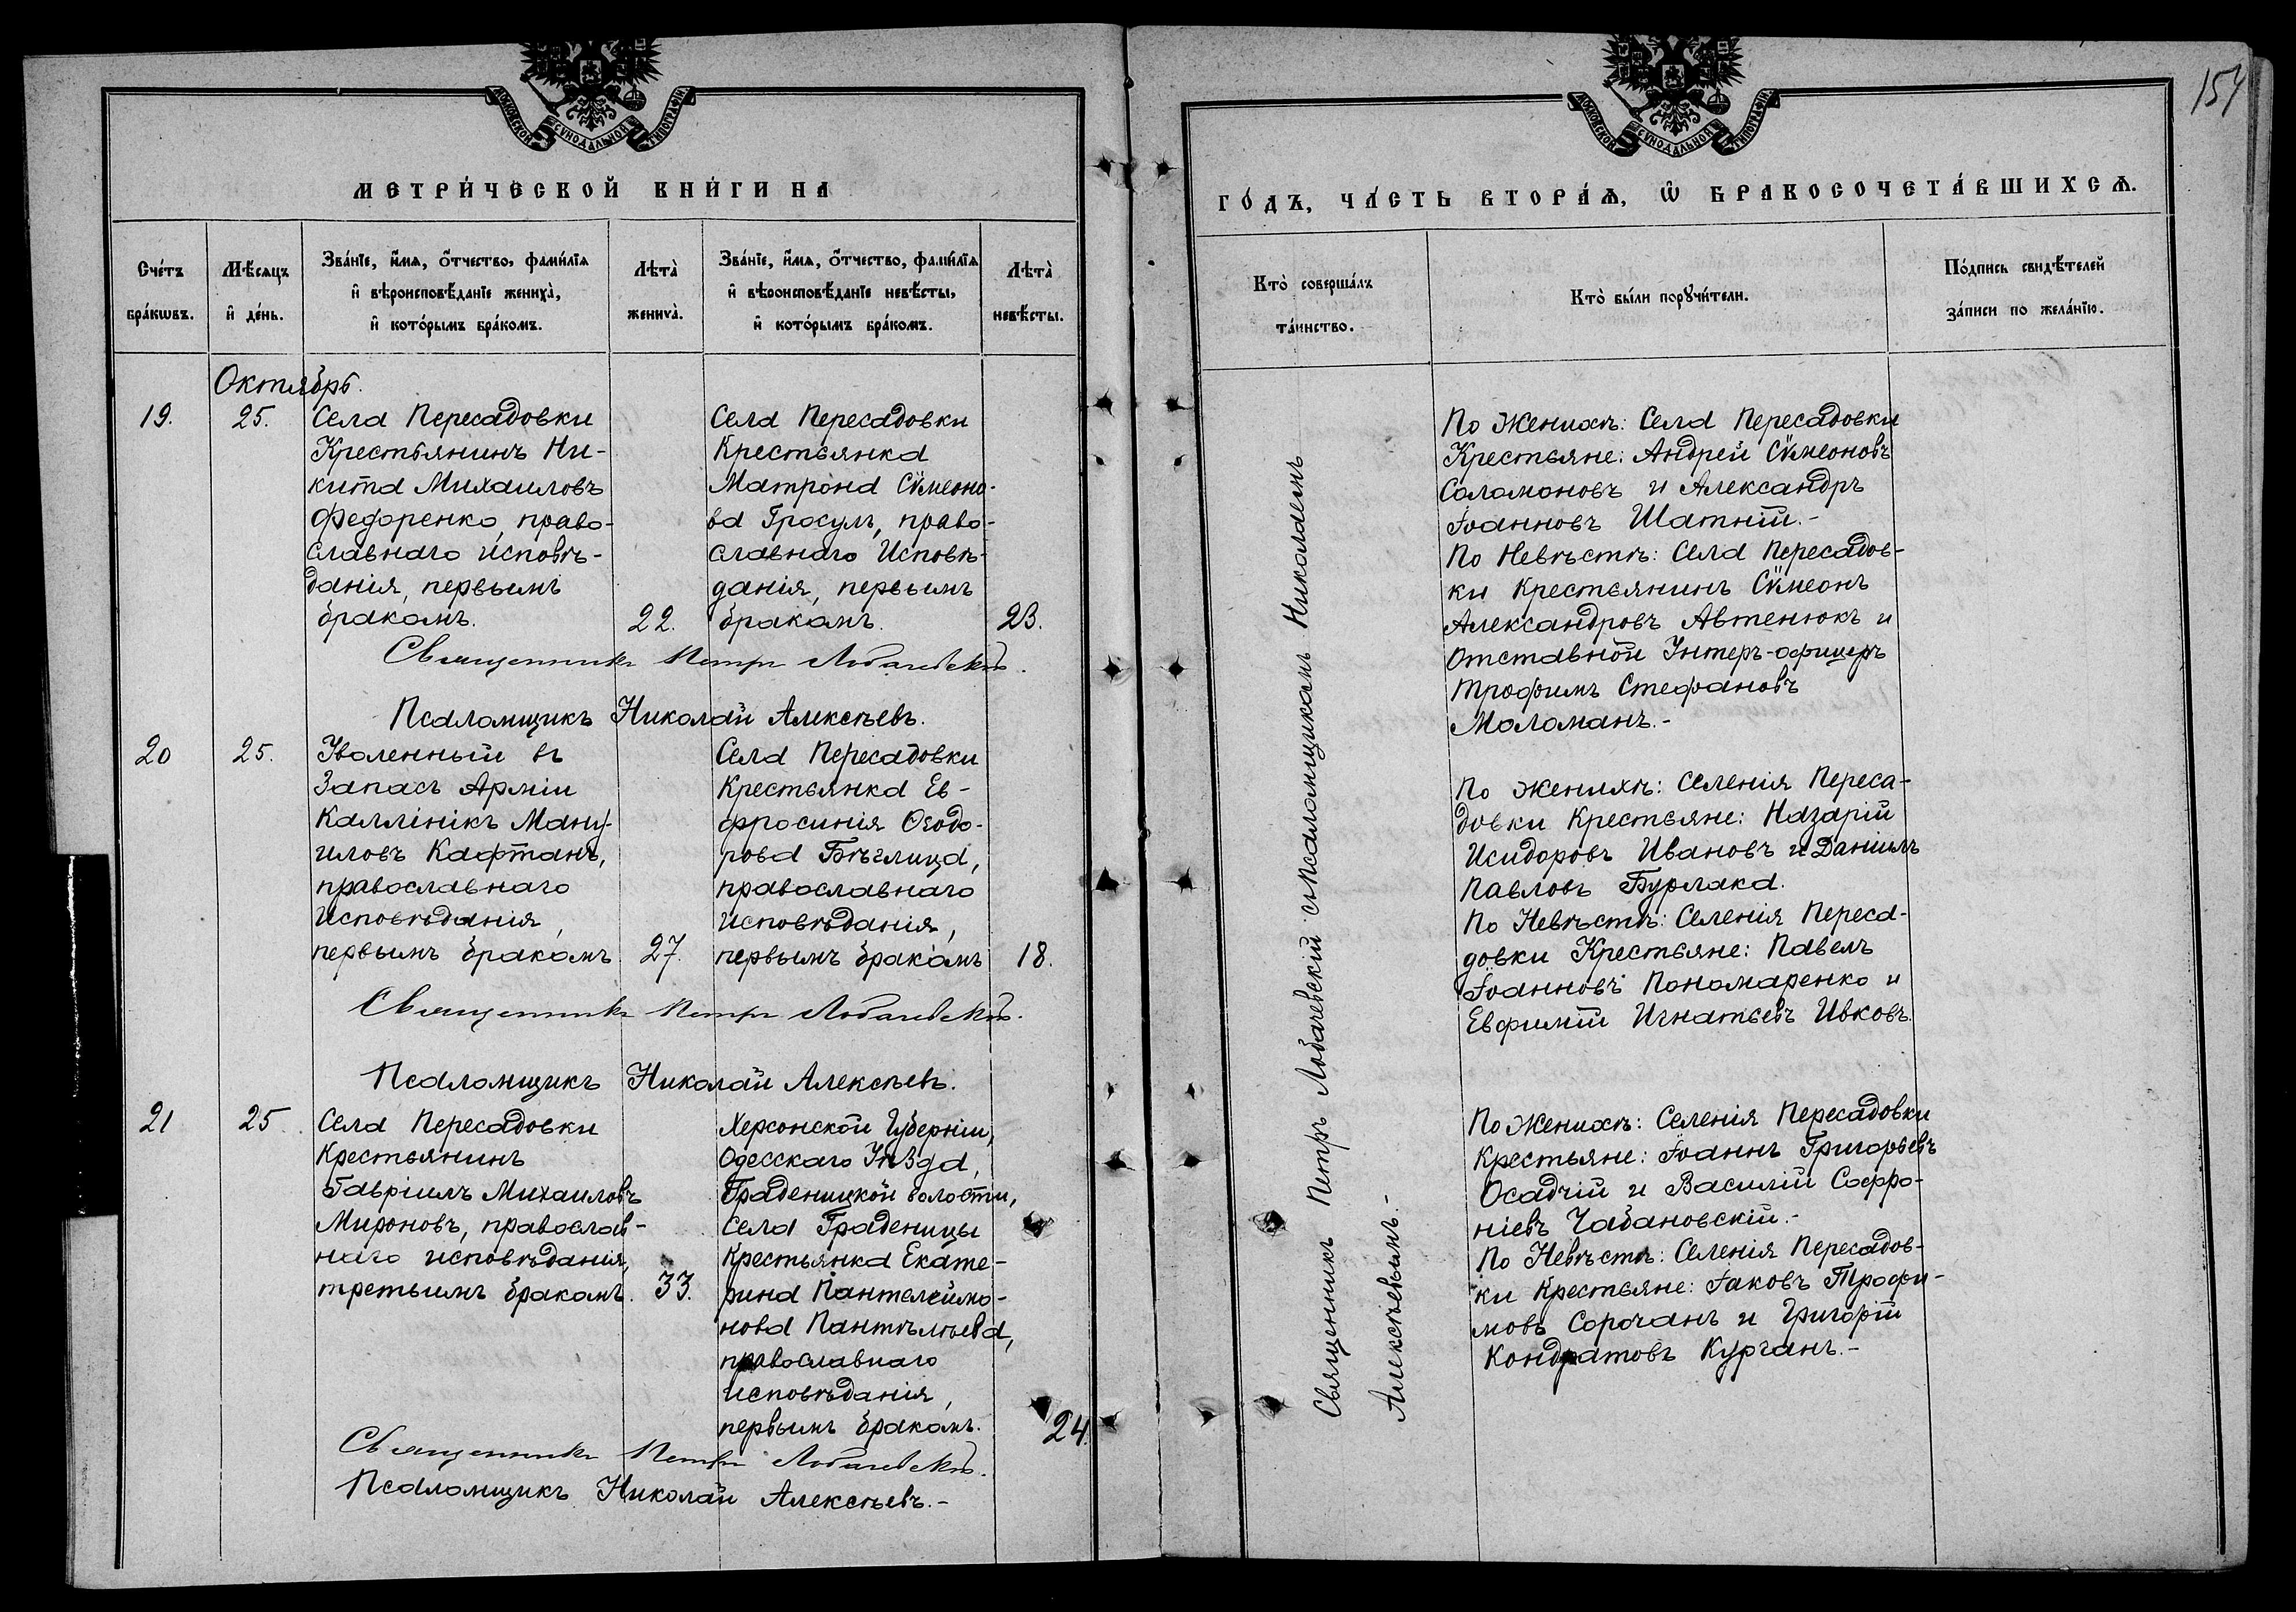 МОСКОВСКОЙ СѴНОДАЛЬНОЙ ТИПОГРАФІИ
МЕТРИ́ЧЕСКОЙ КНИ́ГИ НА
Сче́тъ бра́кѡвъ.
Мѣ́сяцъ и҆ де́нь.
Зва́нїе, и҆́мѧ, ѻ҆́тчество, фами́лїѧ
и҆ вѣроисповѣ́данїе жениха̀,
и҆ кото́рымъ бра́комъ.
Лѣ́та̀ жениха̀.
Зва́нїе, и҆́мѧ, ѻ҆́тчество, фами́лїѧ
и҆ вѣроисповѣ́данїе невѣ́сты,
и҆ кото́рымъ бра́комъ.
Лѣ́та̀ невѣ́сты.
Октябрь.
19.
25.
Села Пересадовки
Крестьянинъ Ни-
кита Михаиловъ
Федоренко, право-
славнаго исповѣ-
данія, первымъ
бракомъ.
22.
Села Пересадовки
Крестьянка
Матрона Сѵмеоно-
ва Гросулъ, право-
славнаго Исповѣ-
данія, первымъ
бракомъ.
23.
Священникъ Петръ Лобачевскій.
Псаломщикъ Николай Алексѣевъ.
20
25.
Уволенный въ
Запасъ Арміи
Каллінікъ Ману-
иловъ Кафтанъ,
православнаго
Исповѣданія,
первымъ бракомъ
27.
Села Пересадовки
Крестьянка Ев-
фросинія Ѳеодо-
рова Бѣглица,
православнаго
исповѣданія,
первымъ бракомъ
18.
Священникъ Петръ Лобачевскій.
Псаломщикъ Николай Алексѣевъ.
21
25.
Села Пересадовки
Крестьянинъ
Гавріилъ Михаиловъ
Мироновъ, православ-
наго исповѣданія,
третьимъ бракомъ.
33.
Херсонской Губерніи,
Одесскаго Уѣзда,
Граденицкой волости,
села Граденицы
Крестьянка Екате-
рина Пантелеймо-
нова Пантѣлѣева,
православнаго
исповѣданія,
первымъ бракомъ.
24.
Священникъ Петръ Лобачевскій.
Псаломщикъ Николай Алексѣевъ.-
154
МОСКОВСКОЙ СѴНОДАЛЬНОЙ ТИПОГРАФІИ
ГО́ДЪ, ЧА́СТЬ ВТОРА́Ѧ, Ѽ БРАКОСОЧЕТА́ВШИХСѦ.
Кто̀ соверша́лъ
та́инство.
Кто̀ бы́ли порꙋчи́тели.
По́дпись свидѣ́телей
за́писи по жела́нїю.
Священникъ Петръ Лобачевскій съ Псаломщикомъ Николаемъ
Алексѣевымъ.-
По Женихѣ: Села Пересадовки
Крестьяне: Андрей Сѵмеоновъ
Саламоновъ и Александръ
Іоанновъ Шатній.-
По Невѣстѣ: Села Пересадов-
ки Крестьянинъ Сѵмеонъ
Александровъ Автенюкъ и
Отставной Унтеръ-офицеръ
Трофимъ Стефановъ
Маломанъ.-
По женихѣ: Селенія Переса-
довки Крестьяне: Назарій
Исидоровъ Ивановъ и Даніилъ
Павловъ Бурлака.
По Невѣстѣ: Селенія Переса-
довки Крестьяне: Павелъ
Іоанновъ Пономаренко и
Евфимій Игнатьевъ Ивковъ.
По Женихѣ: Селенія Пересадовки
Крестьяне: Іоаннъ Григорьевъ
Осадчій и Василій Софро-
ніевъ Чабановскій.-
По Невѣстѣ: Селенія Пересадов-
ки Крестьяне: Іаковъ Трофи-
мовъ Сорочанъ и Григорій
Кондратовъ Курганъ.-